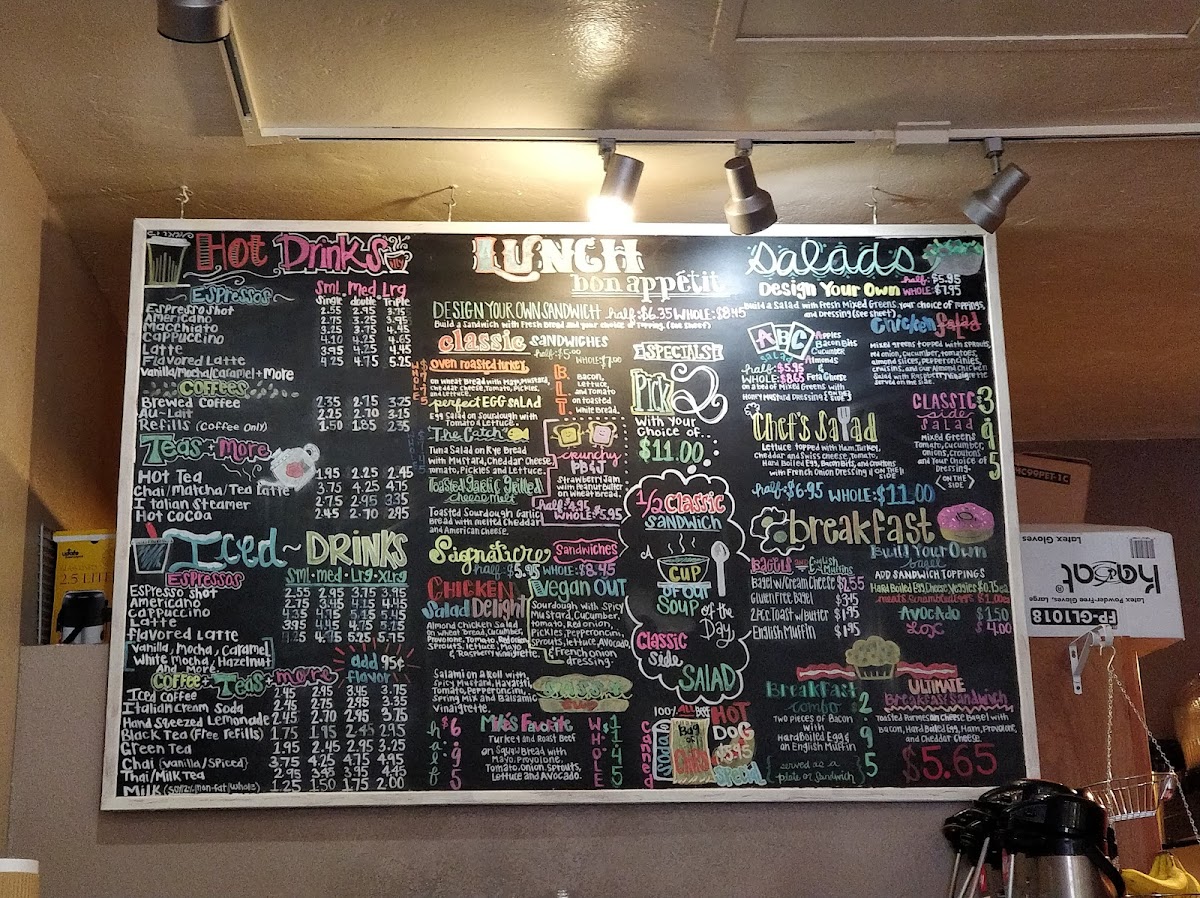 Hot Drinks
Sml Med Lrg
Espressos single double Triple
Espresso Shot 2.55 2.95 3.75
Americano 2.75 3.45
Macchiato 3.25 3.75 4.65
Cappuccino 4.10 4.25 4.65
Latte 3.95 4.25 4.45
Flavored Latte 4.25 4.75 5.25
Vanilla/Mocha/Caramel + More
Coffees
Brewed Coffee 2.35 2.75 3.25
Au-Lait 2.25 2.70 3.15
Refills (Coffee Only) 1.50 1.85 2.35
Teas + More
Hot Tea 1.95 2.25 2.45
Chai/Matcha/Tea Latte 3.75 4.25 4.75
Italian Steamer 2.75 2.95 3.35
Hot Cocoa 2.45 2.70 2.95
Iced ~ DRINKS
Espressos
Sml · med · Lrg · XLrg
Espresso Shot 2.55 2.95 3.75 3.95
Americano 2.75 3.45
Cappuccino
Latte
Flavored Latte 4.25 4.75 5.25 5.75
Vanilla, Mocha, Caramel
White Mocha, Hazelnut
And More
add 95¢
flavor
Coffee + Teas + more
Iced Coffee 2.45 2.95 3.45 3.75
Italian Cream Soda 2.45 2.95 3.35
Hand Sqeezed Lemonade 2.45 2.70 2.95 3.75
Black Tea (Free Refills) 1.75 1.95 2.45 2.95
Green Tea 1.95 2.45 2.95 3.25
Chai (vanilla/Spiced) 3.75 4.25 4.75 4.95
Thai/Milk Tea 2.95 3.45 3.95 4.45
Milk (Soy/2%/non-fat/whole) 1.25 1.50 1.75 2.00
LUNCH
bon appétit
DESIGN YOUR OWN SANDWICH half: $6.35 WHOLE: $8.45
Build a Sandwich with Fresh Bread and your choice of Topping. (See Sheet)
classic SANDWICHES
half: $5.00 WHOLE: $7.00
Oven roasted turkey
on Wheat Bread with Mayo, Mustard,
Cheddar Cheese, Tomato, Pickles,
and Lettuce.
perfect EGG SALAD
Egg Salad on Sourdough with
Tomato & Lettuce.
The Catch
Tuna Salad on Rye Bread
with Mustard, Cheddar Cheese,
Tomato, Pickles and Lettuce.
Toasted garlic Grilled
cheese melt
Toasted Sourdough Garlic
Bread with melted Cheddar
and American Cheese.
B.L.T.
Bacon,
Lettuce,
and Tomato
on toasted
White Bread.
crunchy
PB&J
Strawberry Jam
with Peanut Butter
on Wheat Bread.
half: $4.95
WHOLE: $5.95
Signature Sandwiches
half: $5.95 WHOLE: $8.45
CHICKEN
Salad Delight
Almond Chicken Salad
on wheat Bread, Cucumber,
Provolone, Tomato, Red onion
Sprouts, lettuce, Mayo
& Raspberry Vinaigrette.
Vegan Out
Sourdough with Spicy
Mustard, Cucumber,
Tomato, Red onion,
Pickles, Pepperoncini,
Sprouts, lettuce, Avocado,
& French onion
dressing.
Salami on a Roll with
Spicy Mustard, Havarti,
Tomato, Pepperoncini,
Spring Mix and Balsamic
Vinaigrette.
half $6.95
Mike's Favorite
Turkey and Roast Beef
on Squaw Bread with
Mayo, Provolone,
Tomato, Onion, Sprouts,
Lettuce and Avocado.
WHOLE
SPECIALS
Pick 2
With Your
Choice of..
$11.00
1/2 Classic
SANDWICH
A
CUP
OF OUR
SOUP of the
Day
Classic
Side
SALAD
100% ALL BEEF
HOT
DOG
$3.95
Special
Bag
OF
CHIPS
canned
Soda
Salads
Design Your Own half: $5.95
WHOLE: $7.95
Build a Salad with Fresh Mixed Greens, your choice of Toppings,
and Dressing (See Sheet)
ABC
Salad
half: $5.95
WHOLE: $8.65
Apples
Bacon Bits
Cucumber
Almonds
&
Feta Cheese
on a bed of Mixed Greens with
Honey Mustard Dressing ON THE SIDE
Chicken Salad
Mixed greens topped with sprouts,
red onion, cucumber, tomatoes,
almond slices, pepperoncinis,
craisins, and our Almond Chicken
Salad with Raspberry Vinaigrette
served on the side.
Chef's Salad
Lettuce topped with Ham, Turkey,
Cheddar and Swiss cheese, Tomato,
Hard Boiled Egg, Bacon Bits, and Croutons
with French Onion Dressing ON THE SIDE
half: $6.95 WHOLE: $11.00
CLASSIC
side
SALAD
3.95
Mixed Greens
Tomato, Cucumber,
Onions, Croutons,
and Your Choice of
Dressing.
ON THE
SIDE
breakfast
Bagels and English Muffins
Bagel w/Cream Cheese $2.55
Gluten Free Bagel $3.45
2 Pcs. Toast w/Butter $1.95
English Muffin $1.95
Build Your Own
bagel
ADD SANDWICH TOPPINGS
Hard Boiled Egg, Cheese, Veggies
Avocado $1.50
LOX $4.00
Breakfast
combo
$2.95
Two pieces of
Bacon with
Hard Boiled Egg &
an English Muffin
served as a
plate or sandwich
ULTIMATE
Breakfast Sandwich
Toasted Parmesan Cheese Bagel with
Bacon, Hard Boiled Egg, Ham, Provolone,
and Cheddar Cheese.
$5.65
Latex Gloves
Latex Powder-Free Gloves, large
karat
FP-GL1018